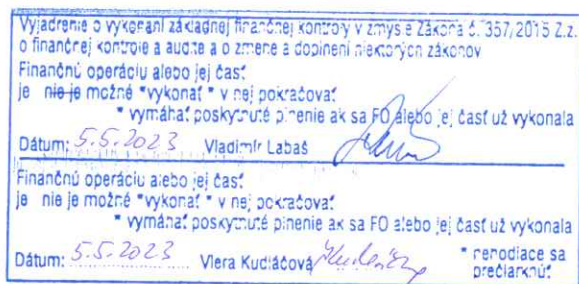 Vyjadrenie o vykonaní základnej finančnej kontroly v zmysle Zákona č. 357/2015 Z.z.
o finančnej kontrole a audite a o zmene a doplnení niektorých zákonov
Finančnú operáciu alebo jej časť
je nie je možné *vykonať * v nej pokračovať
* vymáhať poskytnuté plnenie ak sa FO alebo jej časť už vykonala
Dátum: 5.5.2023 Vladimír Labaš
Finančnú operáciu alebo jej časť
je nie je možné *vykonať * v nej pokračovať
* vymáhať poskytnuté plnenie ak sa FO alebo jej časť už vykonala
Dátum: 5.5.2023 Viera Kudláčová
* nehodiace sa
prečiarknuť